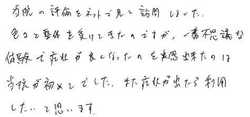 当院の評価をネットで見て訪問しました。
色々と整体を受けてきたのですが、一番不思議な
体験で症状が良くなったのを実感出来たのは
当院が初めてでした。また症状が出たら利用
したいと思います。